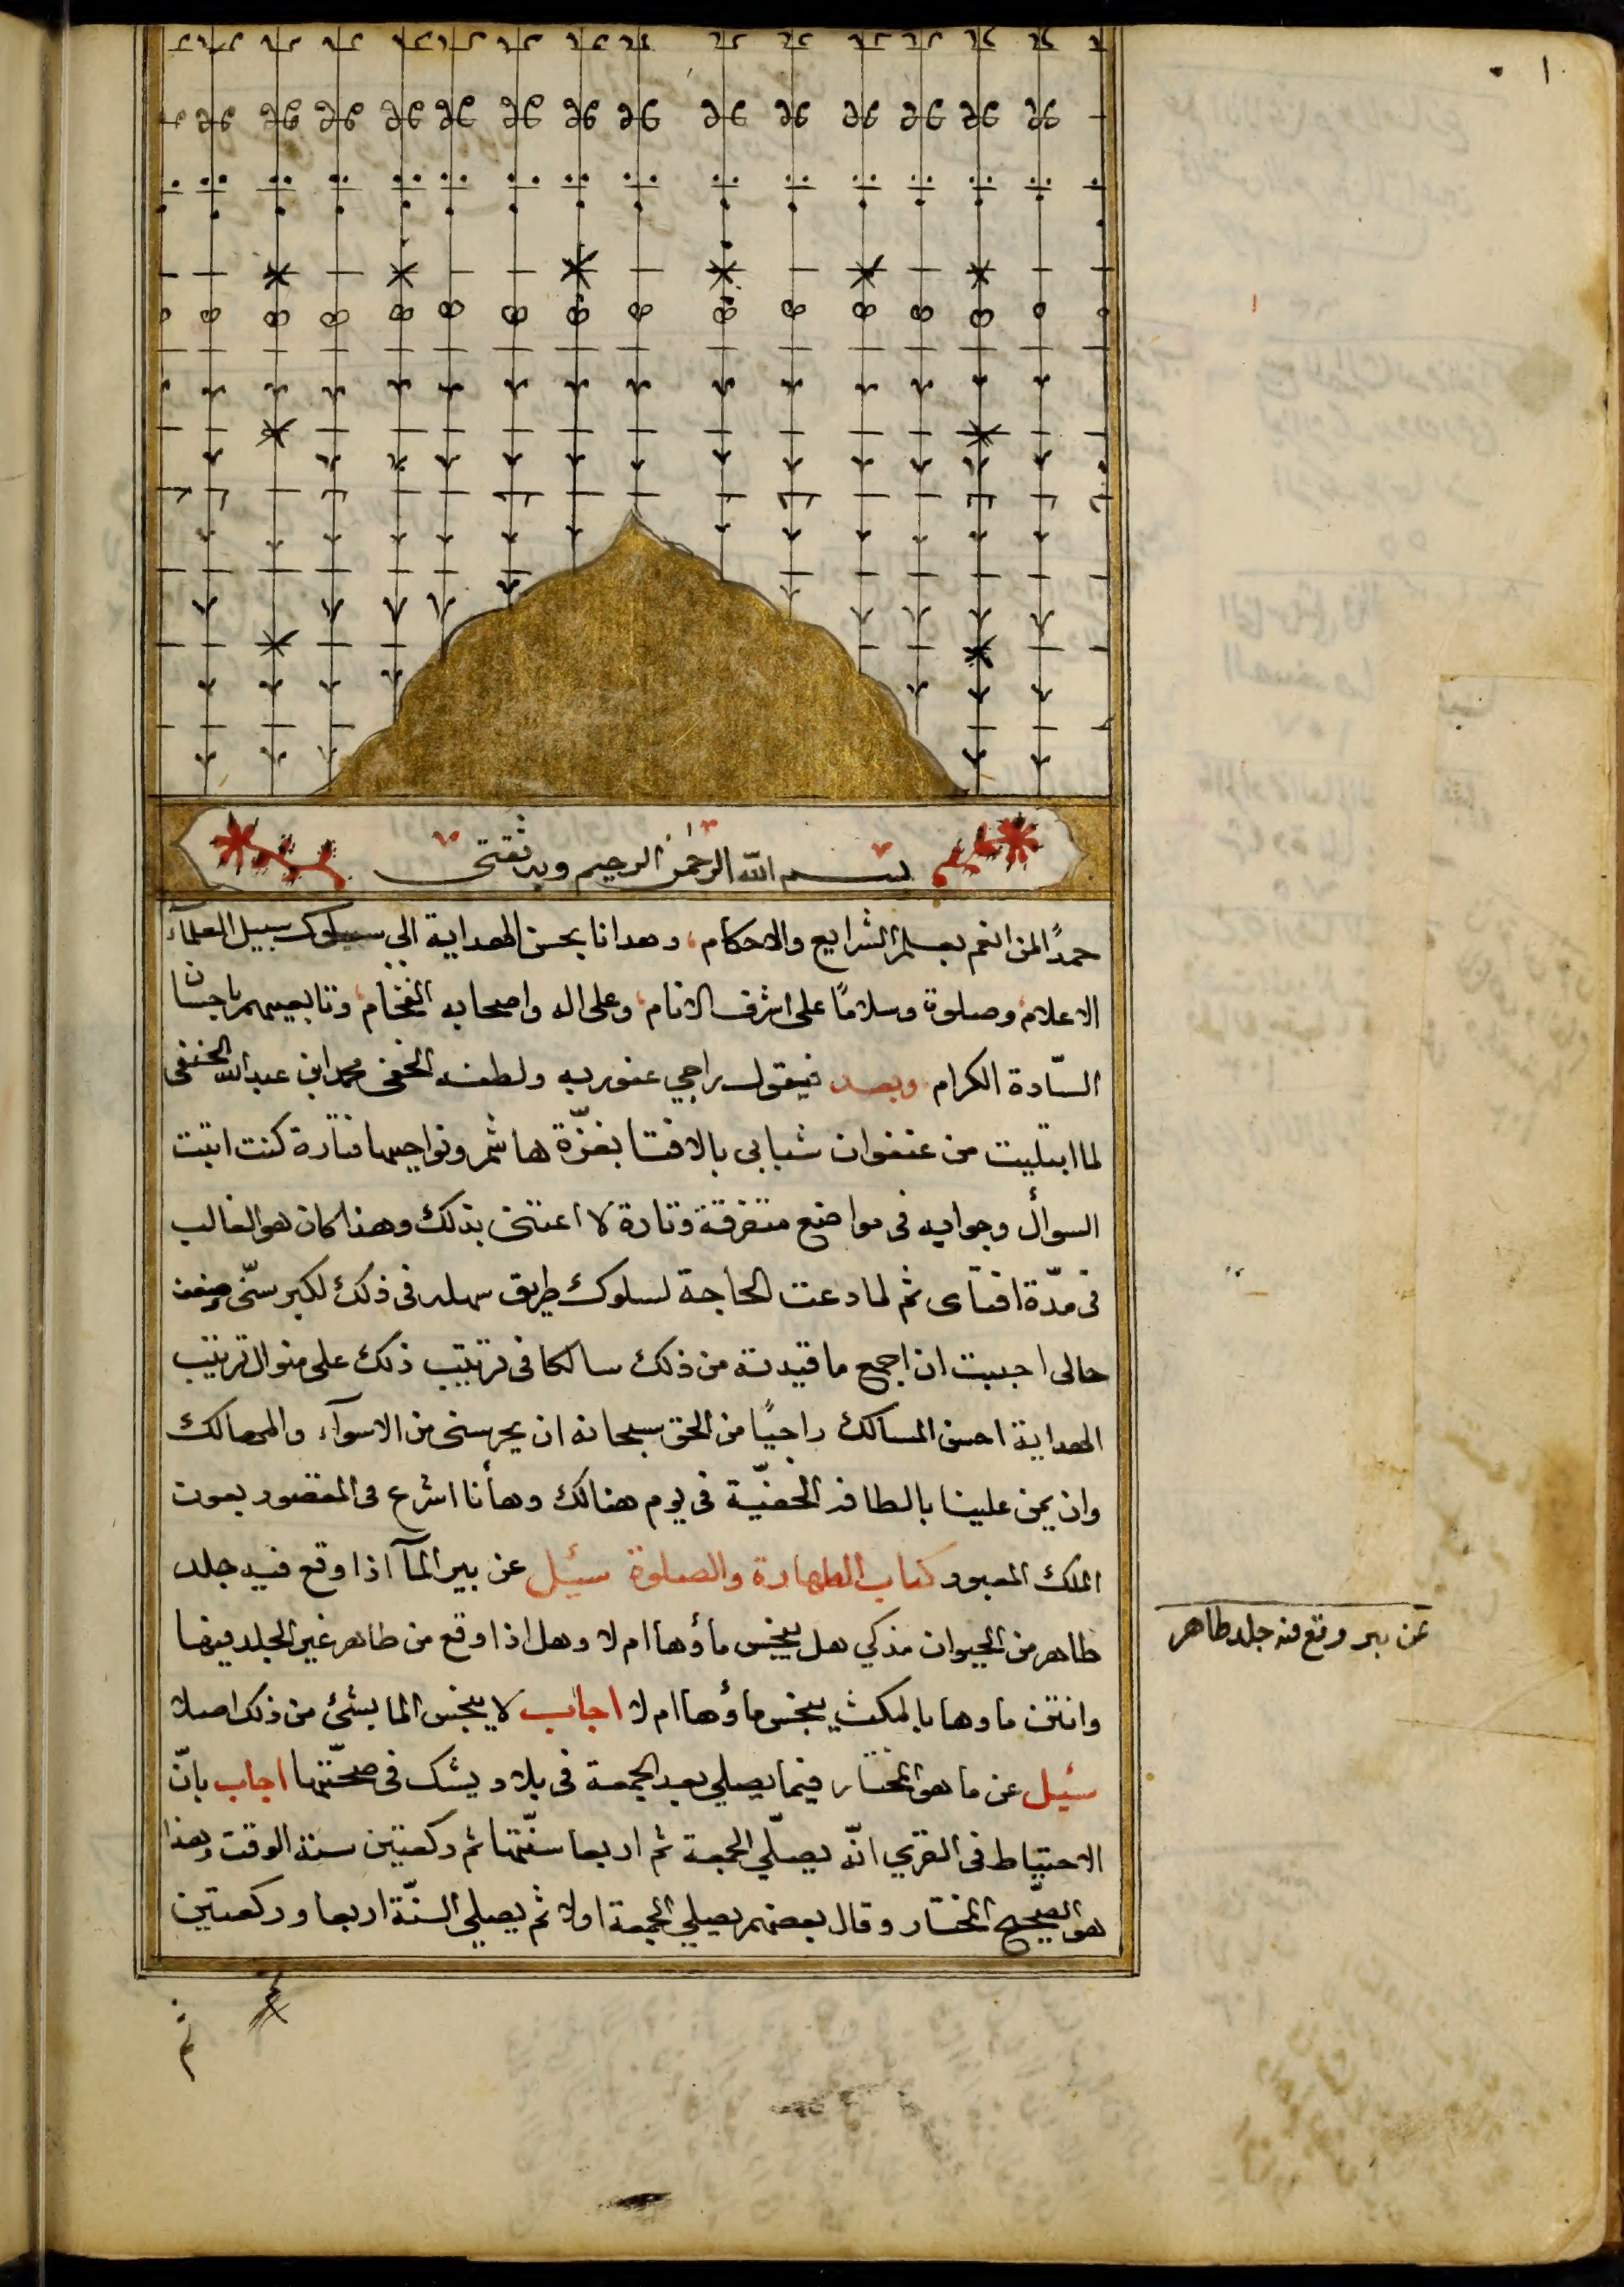 ١
بسم الله الرحمن الرحيم وبه ثقتى
حمدًا لمن انعم بعلم الشرايع والاحكام، وهدانا بحسن الهداية الى سلوك سبيل العلمآء
الاعلام، وصلوة وسلامًا على اشرف الانام، وعلى اله واصحابه الفخام، وتابعيهم باحسان
السّادة الكرام وبعد فيقول راجي عفو ربه ولطفه الخفى محمد ابن عبد الله الحنفى
لما ابتليت من عنفوان شبابى بالافتا بغزّة هاشم ونواحيها فتارة كنت اثبت
السوأل وجوابه فى مواضع متفرقة وتارة لا اعتنى بذلك وهذا كان هو الغالب
فى مدّة افتآى ثم لما دعت الحاجة لسلوك طريق سهله فى ذلك لكبر سنّى وضعف
حالى احببت ان اجمع ما قيدته من ذلك سالكا فى ترتيب ذلك على منوال ترتيب
الهداية احسن المسالك راجيًا من الحق سبحانه ان يحرسنى من الاسوآء والمهالك
وان يمن علينا بالطافه الخفيّة فى يوم هنالك وهأنا اشرع فى المقصود بعون
الملك المعبود كتاب الطهارة والصلوة سئيل عن بير المآ اذا وقع فيه جلد
طاهر من الحيوان مذكي هل ينجس مأوها ام لا وهل اذا وقع من طاهر غير الجلد فيها
وانتن ماوها بالمكث ينجس مأوها ام لا اجاب لا ينجس الما بشئ من ذلك اصلا
سئيل عن ما هو المختار فيما يصلي بعد الجمعة فى بلاد يشك فى صحّتها اجاب بانّ
الاحتياط فى القري انّه يصلّي الجمعة ثم اربعا سنّتها ثم ركعتين سنة الوقت وهذا
هو الصّحيح المختار وقال بعضهم يصلي الجمعة اولا ثم يصلي السنّة اربعا وركعتين
عن بير وقع فيه جلد طاهر
ثم